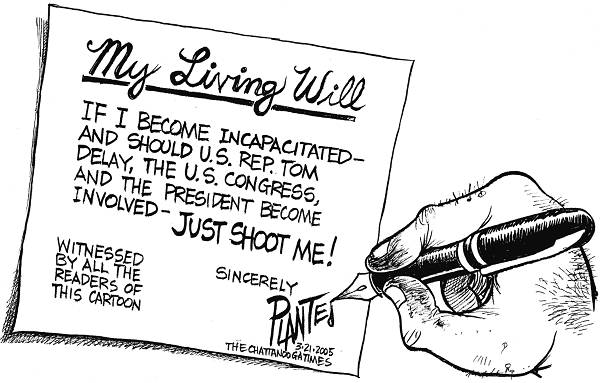 My Living Will
IF I BECOME INCAPACITATED—
AND SHOULD U.S. REP. TOM
DELAY, THE U.S. CONGRESS,
AND THE PRESIDENT BECOME
INVOLVED— JUST SHOOT ME!
WITNESSED
BY ALL THE
READERS OF
THIS CARTOON
SINCERELY
PLANTE
3·21·2005
THE CHATTANOOGA TIMES